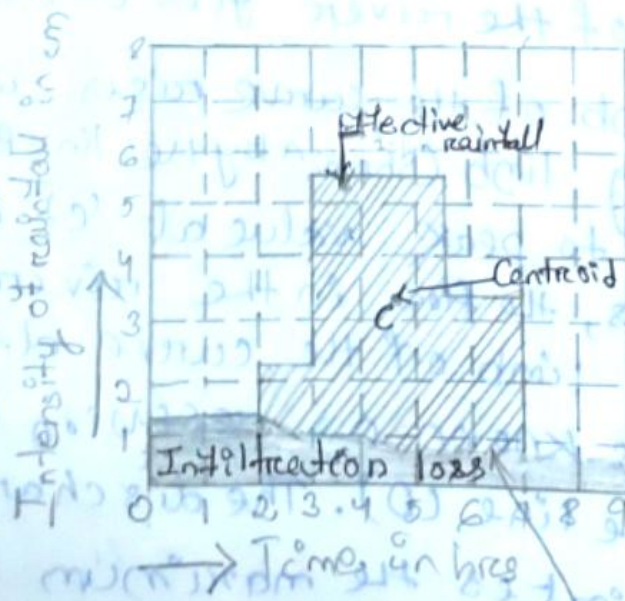 Intensity of rainfall in cm
8
7
6
5
4
3
2
1
Effective
rainfall
Centroid
C
Infiltration loss
0 1 2 3 4 5 6 7 8 9
Time in hrs